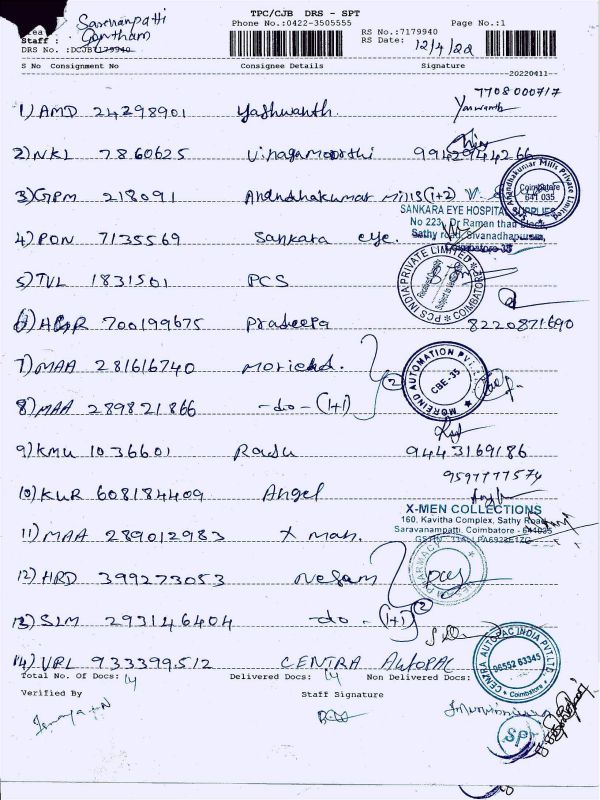 TPC/CJB DRS - SPT
Saravanpatti
Phone No.:0422-3505555 Page No.:1
Staff : Gowtham RS No.:7179940
DRS No. :DCJB7179940 RS Date: 12/4/22
S No Consignment No Consignee Details Signature
20220411
7708000717
1) AMD 24298901 Yashwanth. Yaswanth
2) NKL 7860625 Vinagamoorthi 9942944266
3) GPM 218091 Anandhakumar Mills (1+2)
Anandhakumar Mills Private Limited Coimbatore 641 035
SANKARA EYE HOSPITAL SUPPLIES
No 223, Dr Raman thad Block,
Sathy road, Sivanadhapuram,
Coimbatore-35
4) PON 7135569 Sankara eye.
5) TVL 1831501 PCS
PCS INDIA PRIVATE LIMITED COIMBATORE
6) 700199675 Pradeepa 8220871690
7) MAA 281616740 Moriend.
MOREIND AUTOMATION PVT. CBE-35
8) MAA 289821866 -do- (1+1) 2
9) KMU 1036601 Radu 9443169186
9597777574
10) KUR 608184409 Angel
X-MEN COLLECTIONS
160, Kavitha Complex, Sathy Road,
Saravanampatti, Coimbatore - 641035
11) MAA 289012983 X man.
12) HRD 399273053 Nesam
PHARMACY
13) SLM 293146404 -do- (1+1) 2
14) VRL 933399512 CENTRA AUTOPAC
CENTRA AUTOPAC INDIA PVT.LTD. 96552 63345 Coimbatore
Total No. Of Docs: 14 Delivered Docs: 14 Non Delivered Docs:
Verified By Staff Signature
SPT